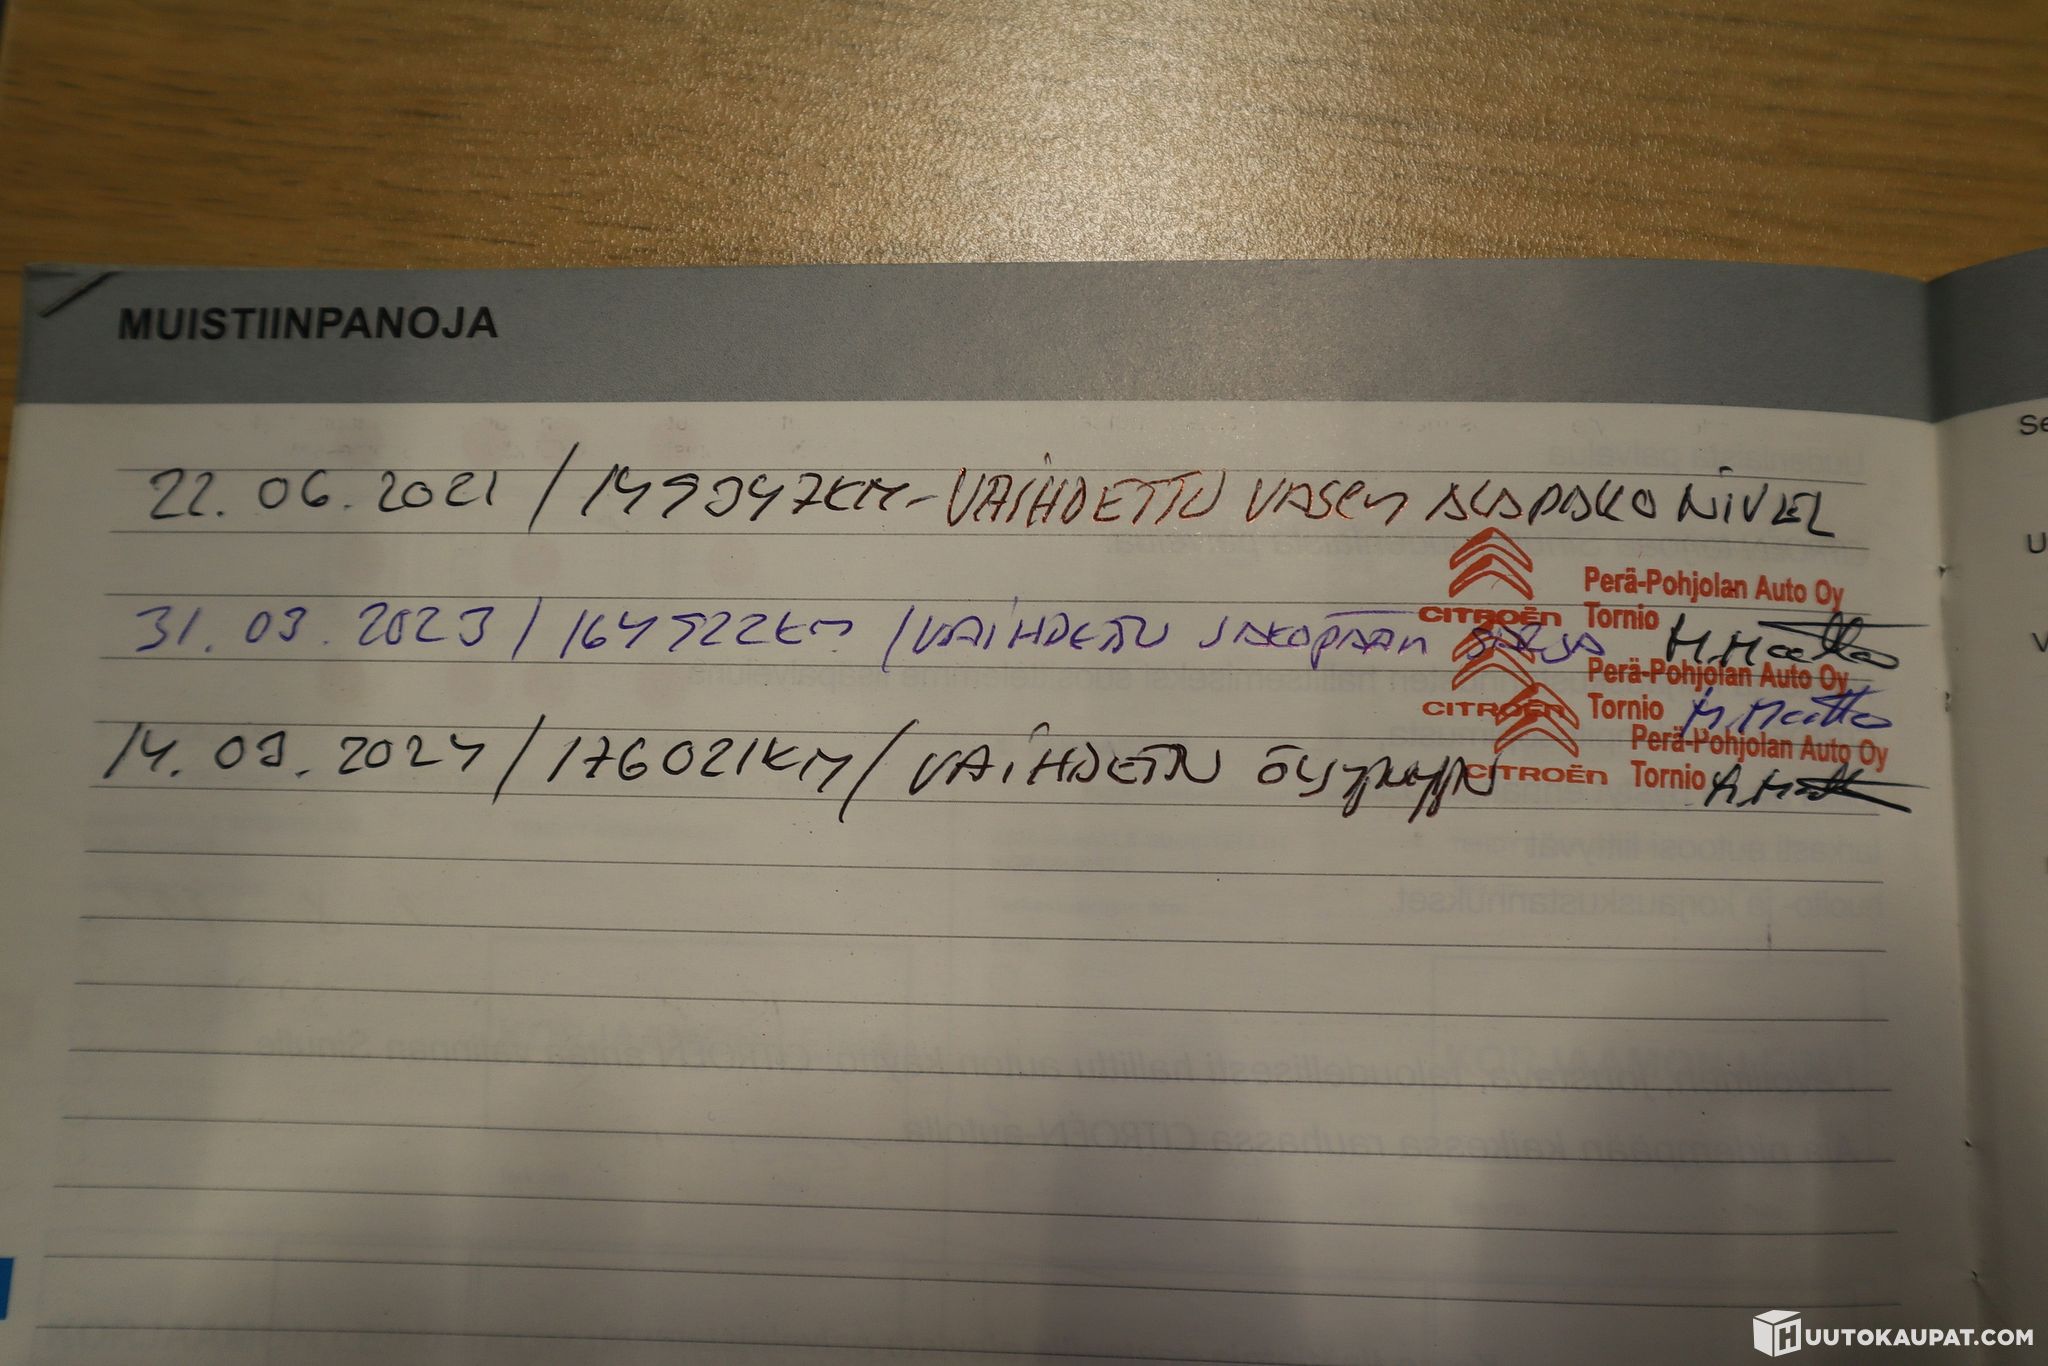 MUISTIINPANOJA
22.06.2021 / 149347KM - VAIHDETTU VASEN ALAPALLONIVEL
CITROËN Perä-Pohjolan Auto Oy
Tornio
31.03.2023 / 164922KM / VAIHDETTU JAKOPÄÄN SARJA
CITROËN Perä-Pohjolan Auto Oy
Tornio
14.03.2024 / 176021KM / VAIHDETTU ÖLJY
CITROËN Perä-Pohjolan Auto Oy
Tornio
HUUTOKAUPAT.COM